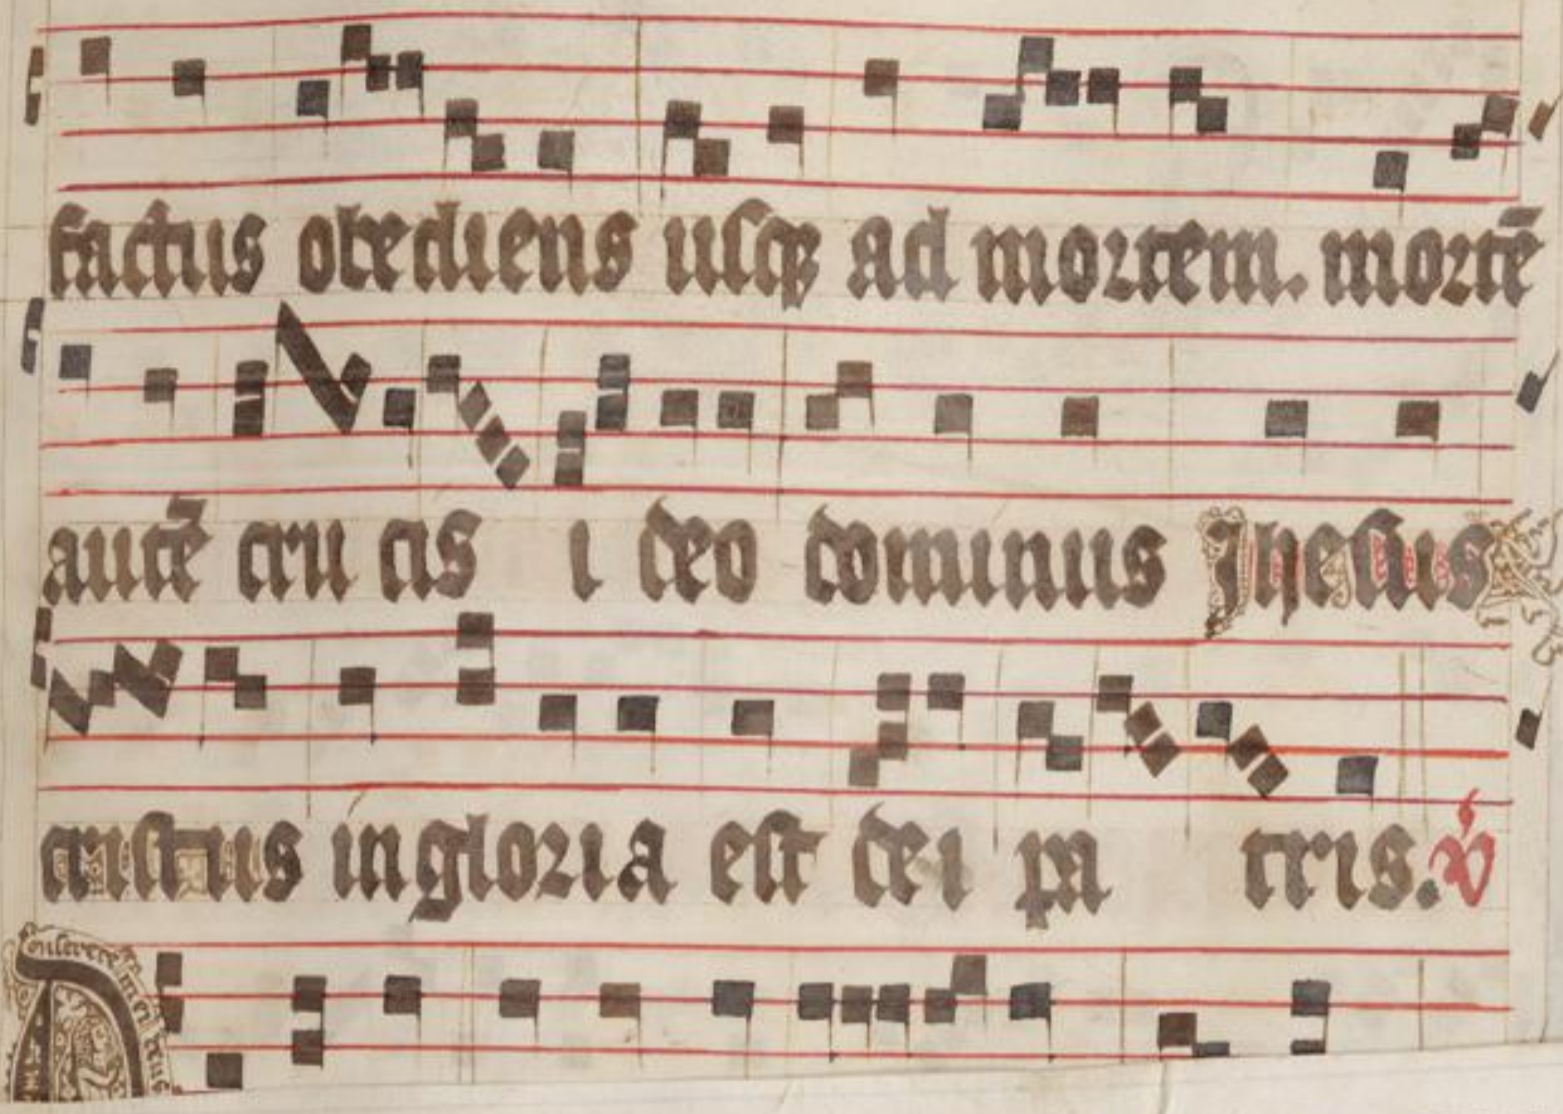 factus obediens usqꝫ ad mortem. mortē
autē cru cis i deo dominus Jhesus
cristus in gloria est dei pa tris. ℣
Conserere mei deus